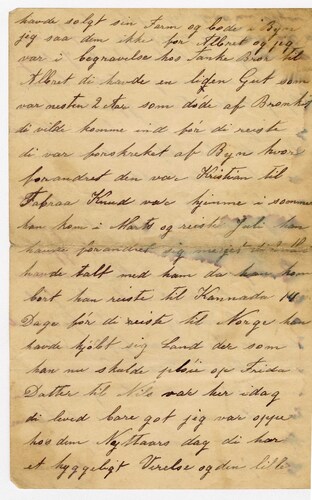 havde solgt sin Farm og bode i Byn
jeg saa dem ikke før Albret og jeg
var i begravelse hos Tanke Bror til
Albret di havde en liden Gut som
var nesten 2 Aar som døde af Bronkit
di vilde komme ind før de reiste
di var forskreket af Byn hvor
forandret den var Kristian til
Knud var hjemme i sommer
han kom i Marts og reiste Juli han
havde forandret sig
havde talt med ham da han kom
bort han reiste til Kannada 14
Dage før di reiste til Norge han
havde kjöbt sig Land der som
han nu skulde pløie op Frida
Datter til Nils var her idag
di leved bare got jeg var oppe
hos dem Nyttaars dag di har
et hyggeligt Verelse og den lille